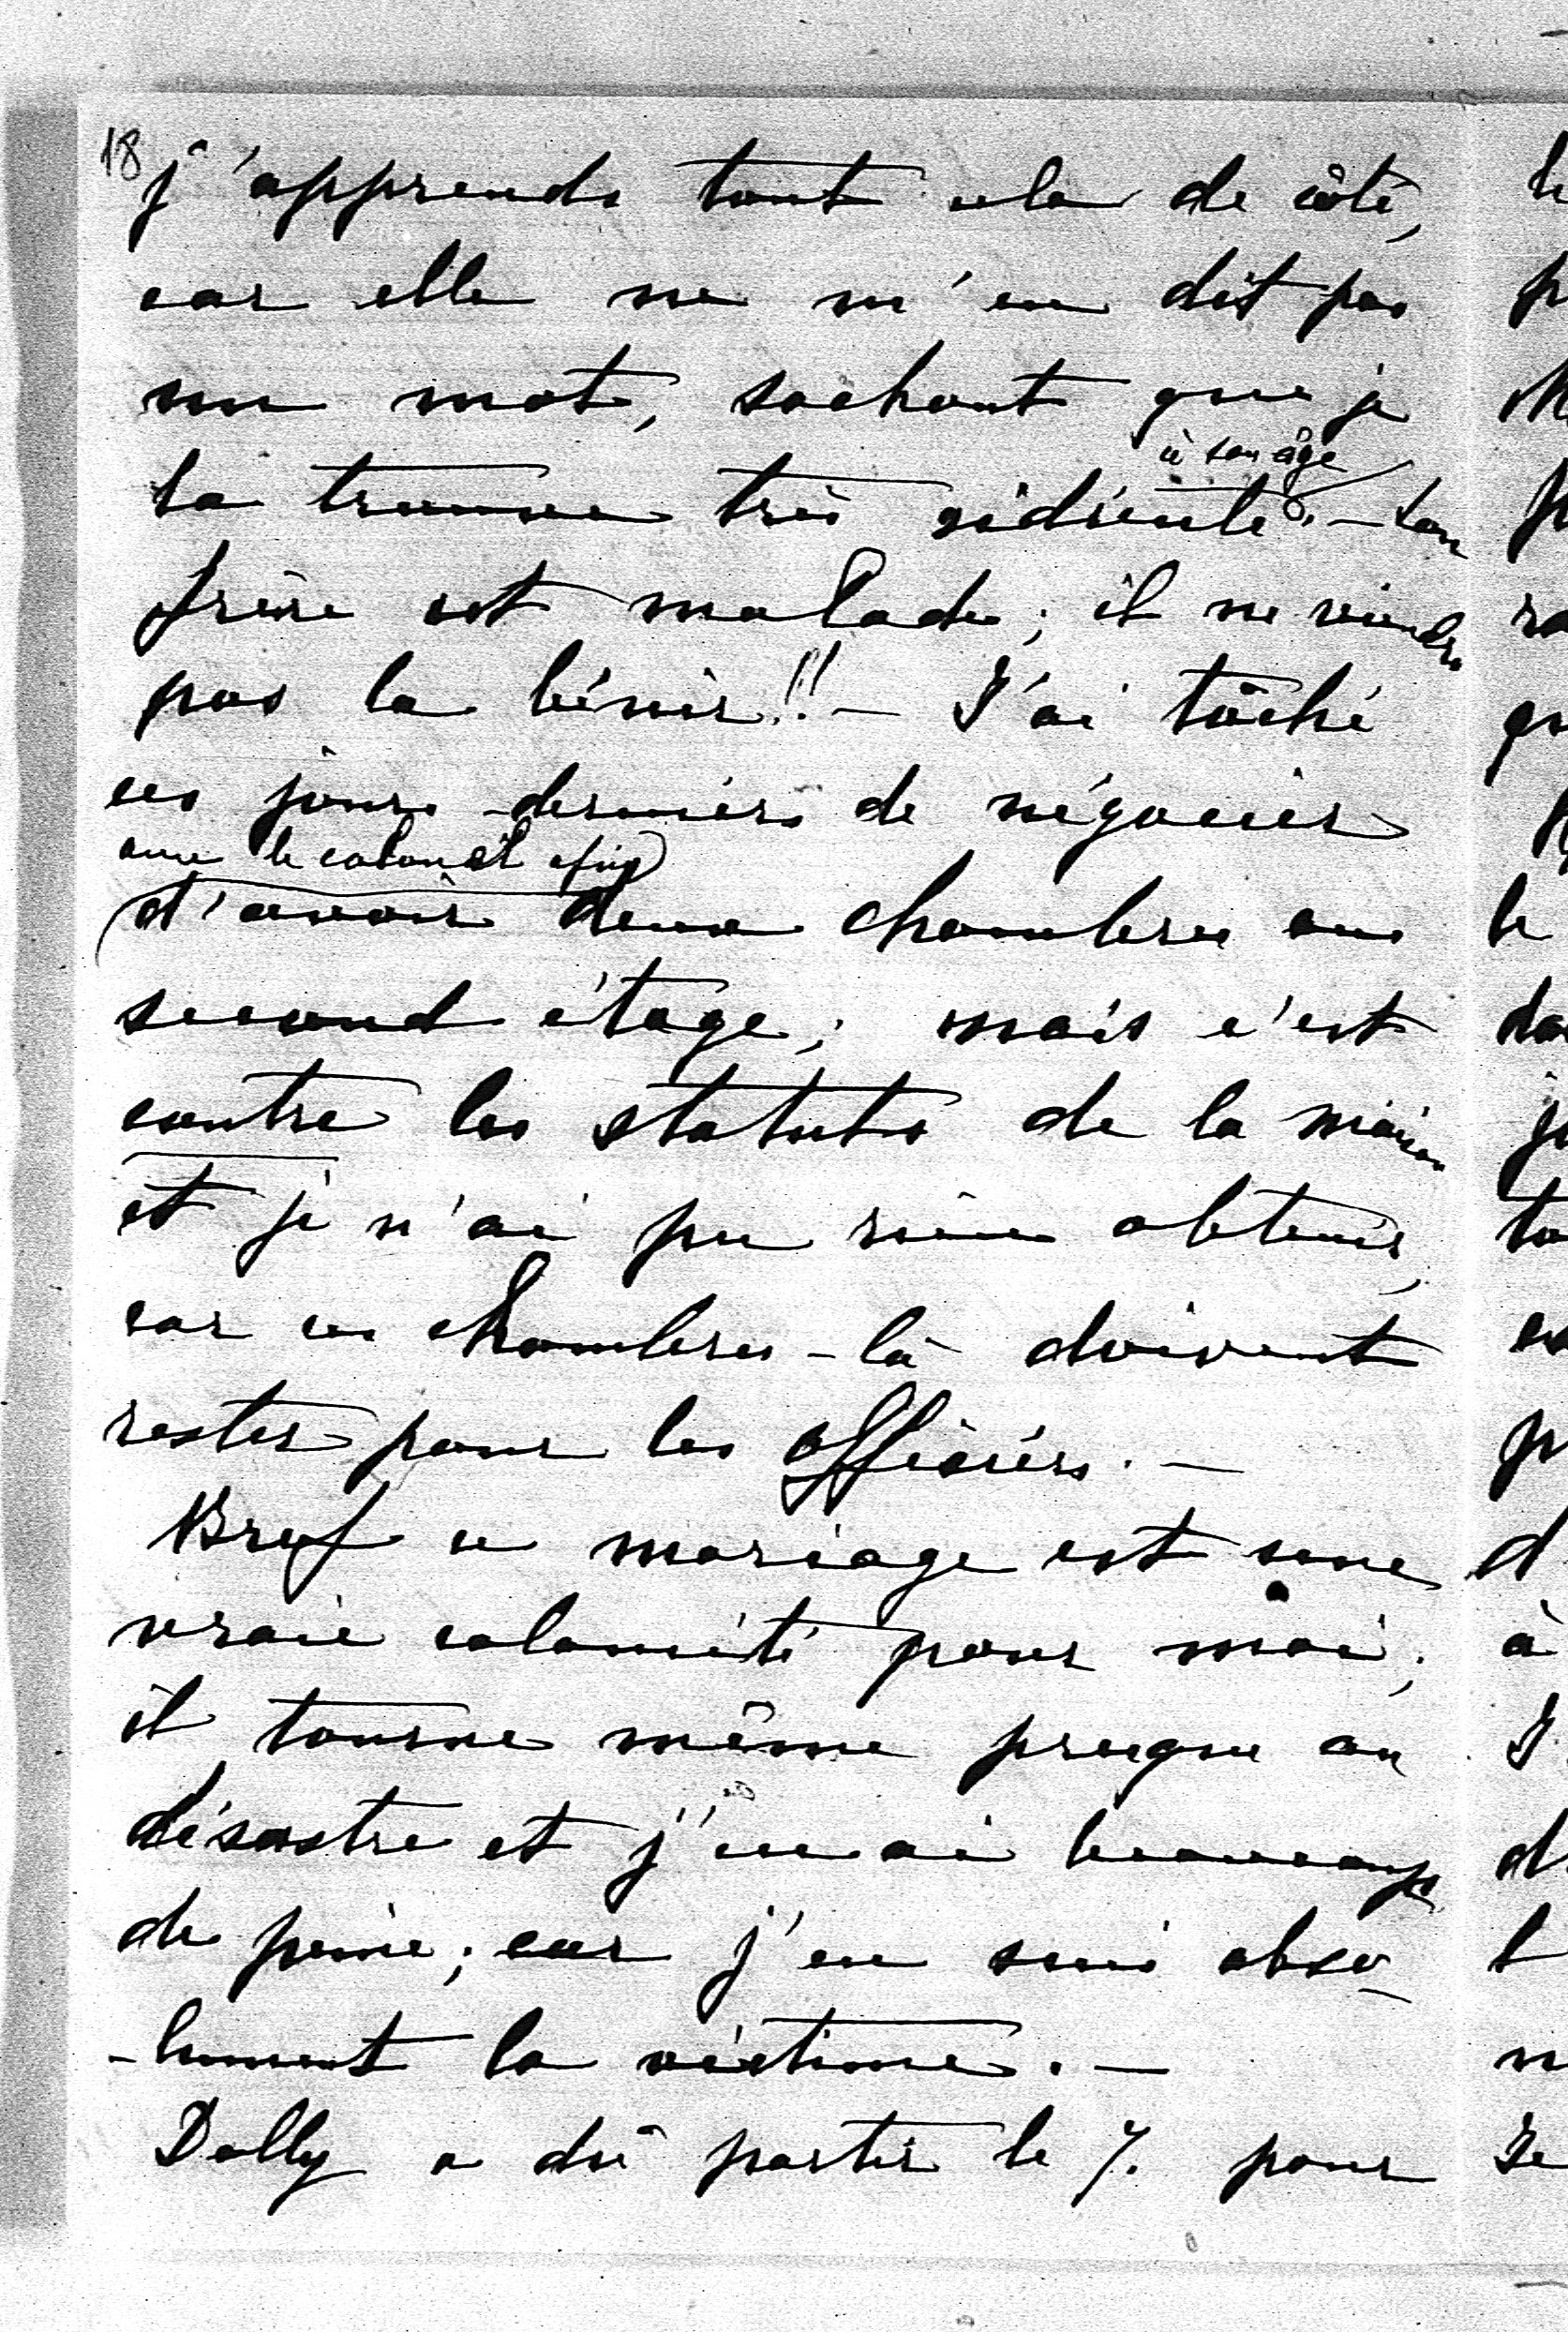 18
j'apprends tout cela de côté,
car elle ne m'en dit pas
un mot, sachant que je
à son âge
la trouve très ridicule. — Son
frère est malade; il ne viendra
pas la bénir!! — J'ai tâché
ces jours derniers de négocier
avec le colonel afin
d'avoir deux chambres au
second étage; mais c'est
contre les statuts de la maison
et je n'ai pu rien obtenir,
car ces chambres-là doivent
rester pour les officiers. —
Bref ce mariage est une
vraie calamité pour moi;
il tourne même presque au
désastre et j'en ai beaucoup
de peine; car j'en suis abso-
-lument la victime. —
Dolly a dû partir le 7. pour